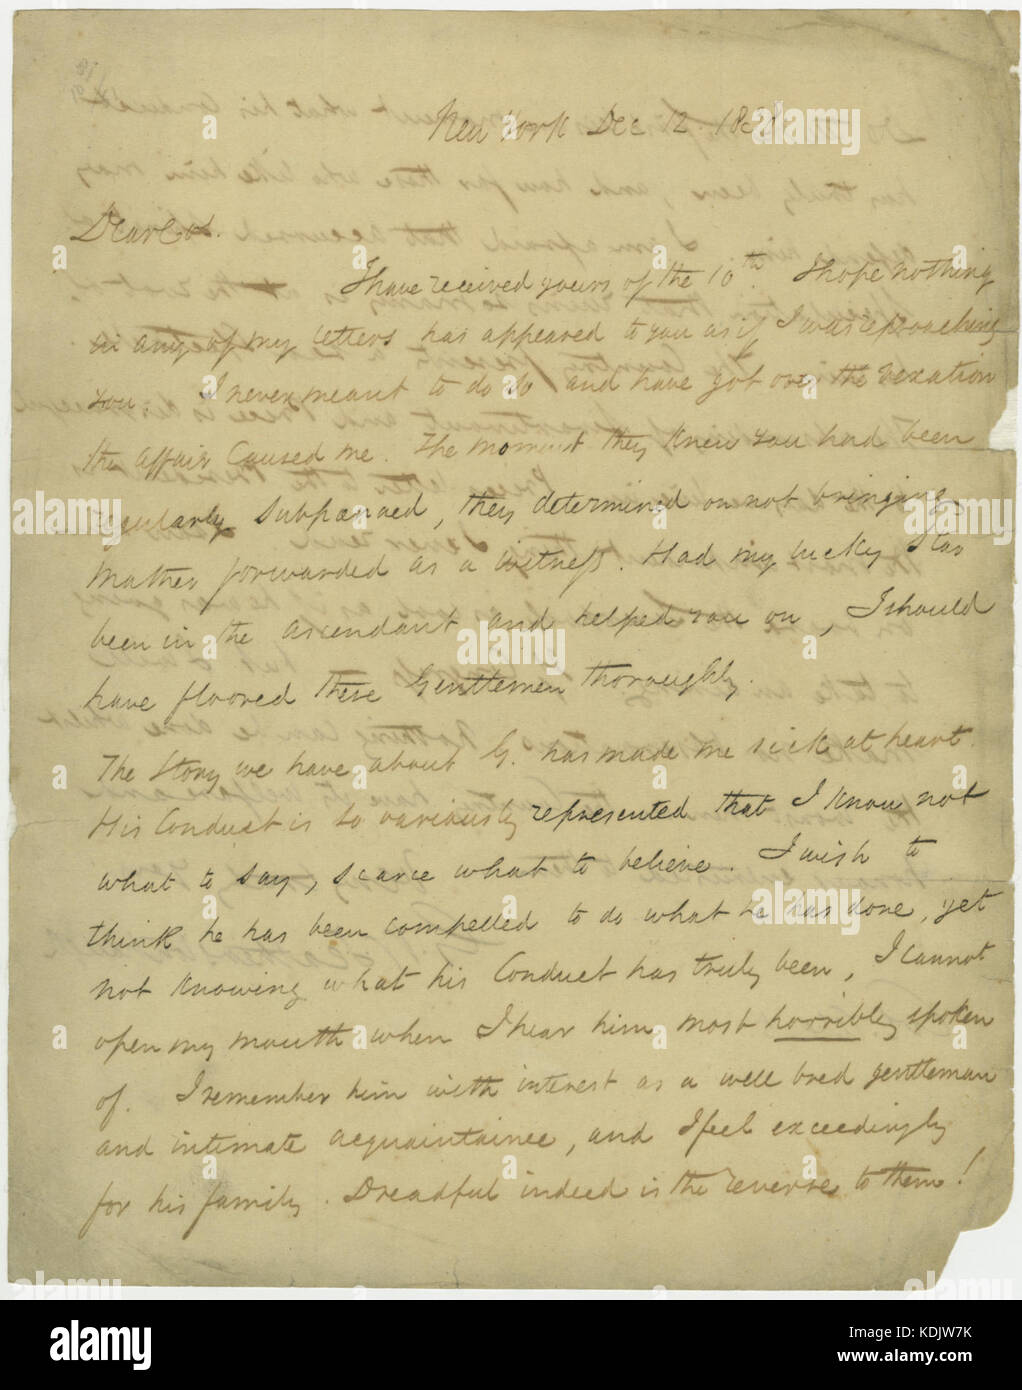 New York Dec 12. 183
Dear Col.
I have received yours of the 10th. I hope nothing
in any of my letters has appeared to you as if I was reproaching
you. I never meant to do so and have got over the vexation
the affair caused me. The moment they knew you had been
regularly subpœnaed, they determined on not bringing
Mather forwarded as a witness. Had my lucky star
been in the ascendant and helped you on, I should
have floored these Gentlemen thoroughly.
The Story we have about G. has made me sick at heart.
His Conduct is so variously represented that I know not
what to say, scarce what to believe. I wish to
think he has been compelled to do what he has done, yet
not knowing what his Conduct has truly been, I cannot
open my mouth when I hear him most horribly spoken
of. I remember him with interest as a well bred gentleman
and intimate acquaintainee, and I feel exceedingly
for his family. Dreadful indeed is the reverse to them!
alamy
Image ID: KDJW7K
www.alamy.com